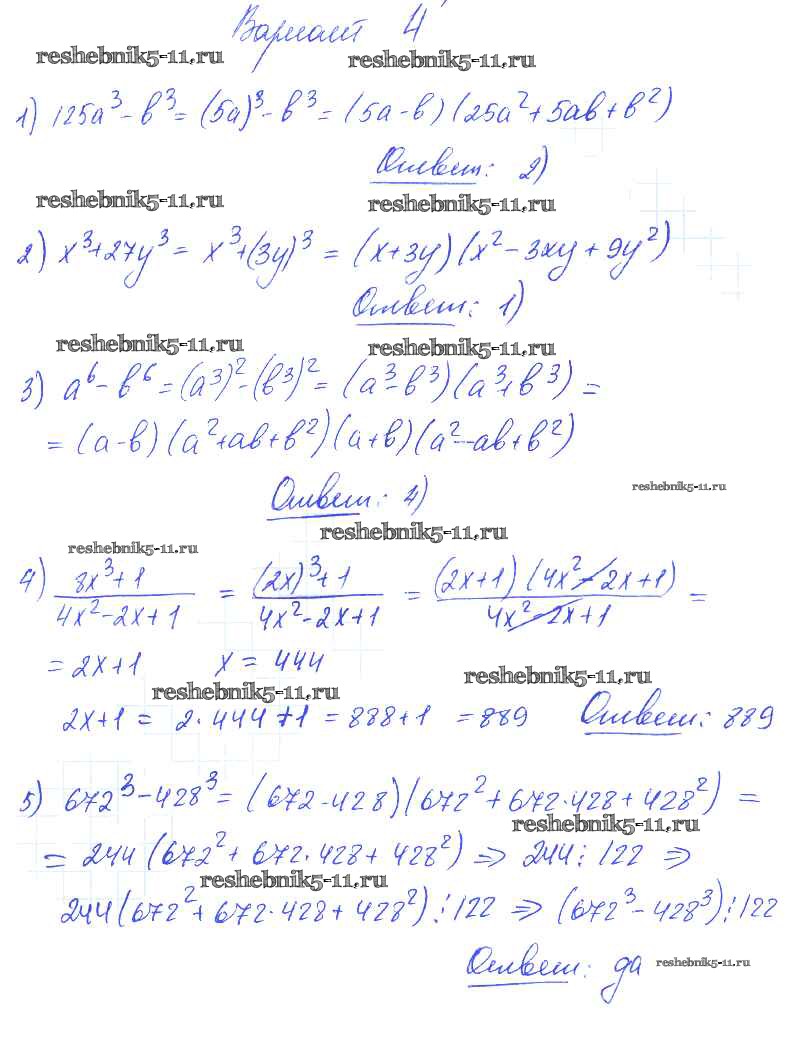 Вариант 4
reshebnik5-11.ru reshebnik5-11.ru
1) 125a³ - b³ = (5a)³ - b³ = (5a - b) (25a² + 5ab + b²)
Ответ: 2)
reshebnik5-11.ru reshebnik5-11.ru
2) x³ + 27y³ = x³ + (3y)³ = (x + 3y) (x² - 3xy + 9y²)
Ответ: 1)
reshebnik5-11.ru reshebnik5-11.ru
3) a⁶ - b⁶ = (a³)² - (b³)² = (a³ - b³) (a³ + b³) =
= (a - b) (a² + ab + b²) (a + b) (a² - ab + b²)
reshebnik5-11.ru
Ответ: 4)
reshebnik5-11.ru reshebnik5-11.ru
4) (8x³ + 1)/(4x² - 2x + 1) = ((2x)³ + 1)/(4x² - 2x + 1) = ((2x + 1) (4x² - 2x + 1))/(4x² - 2x + 1) =
= 2x + 1 x = 444
reshebnik5-11.ru reshebnik5-11.ru
2x + 1 = 2 · 444 + 1 = 888 + 1 = 889 Ответ: 889
5) 672³ - 428³ = (672 - 428) (672² + 672 · 428 + 428²) =
reshebnik5-11.ru
= 244 (672² + 672 · 428 + 428²) ⇒ 244 ⋮ 122 ⇒
reshebnik5-11.ru
244 (672² + 672 · 428 + 428²) ⋮ 122 ⇒ (672³ - 428³) ⋮ 122
Ответ: да reshebnik5-11.ru